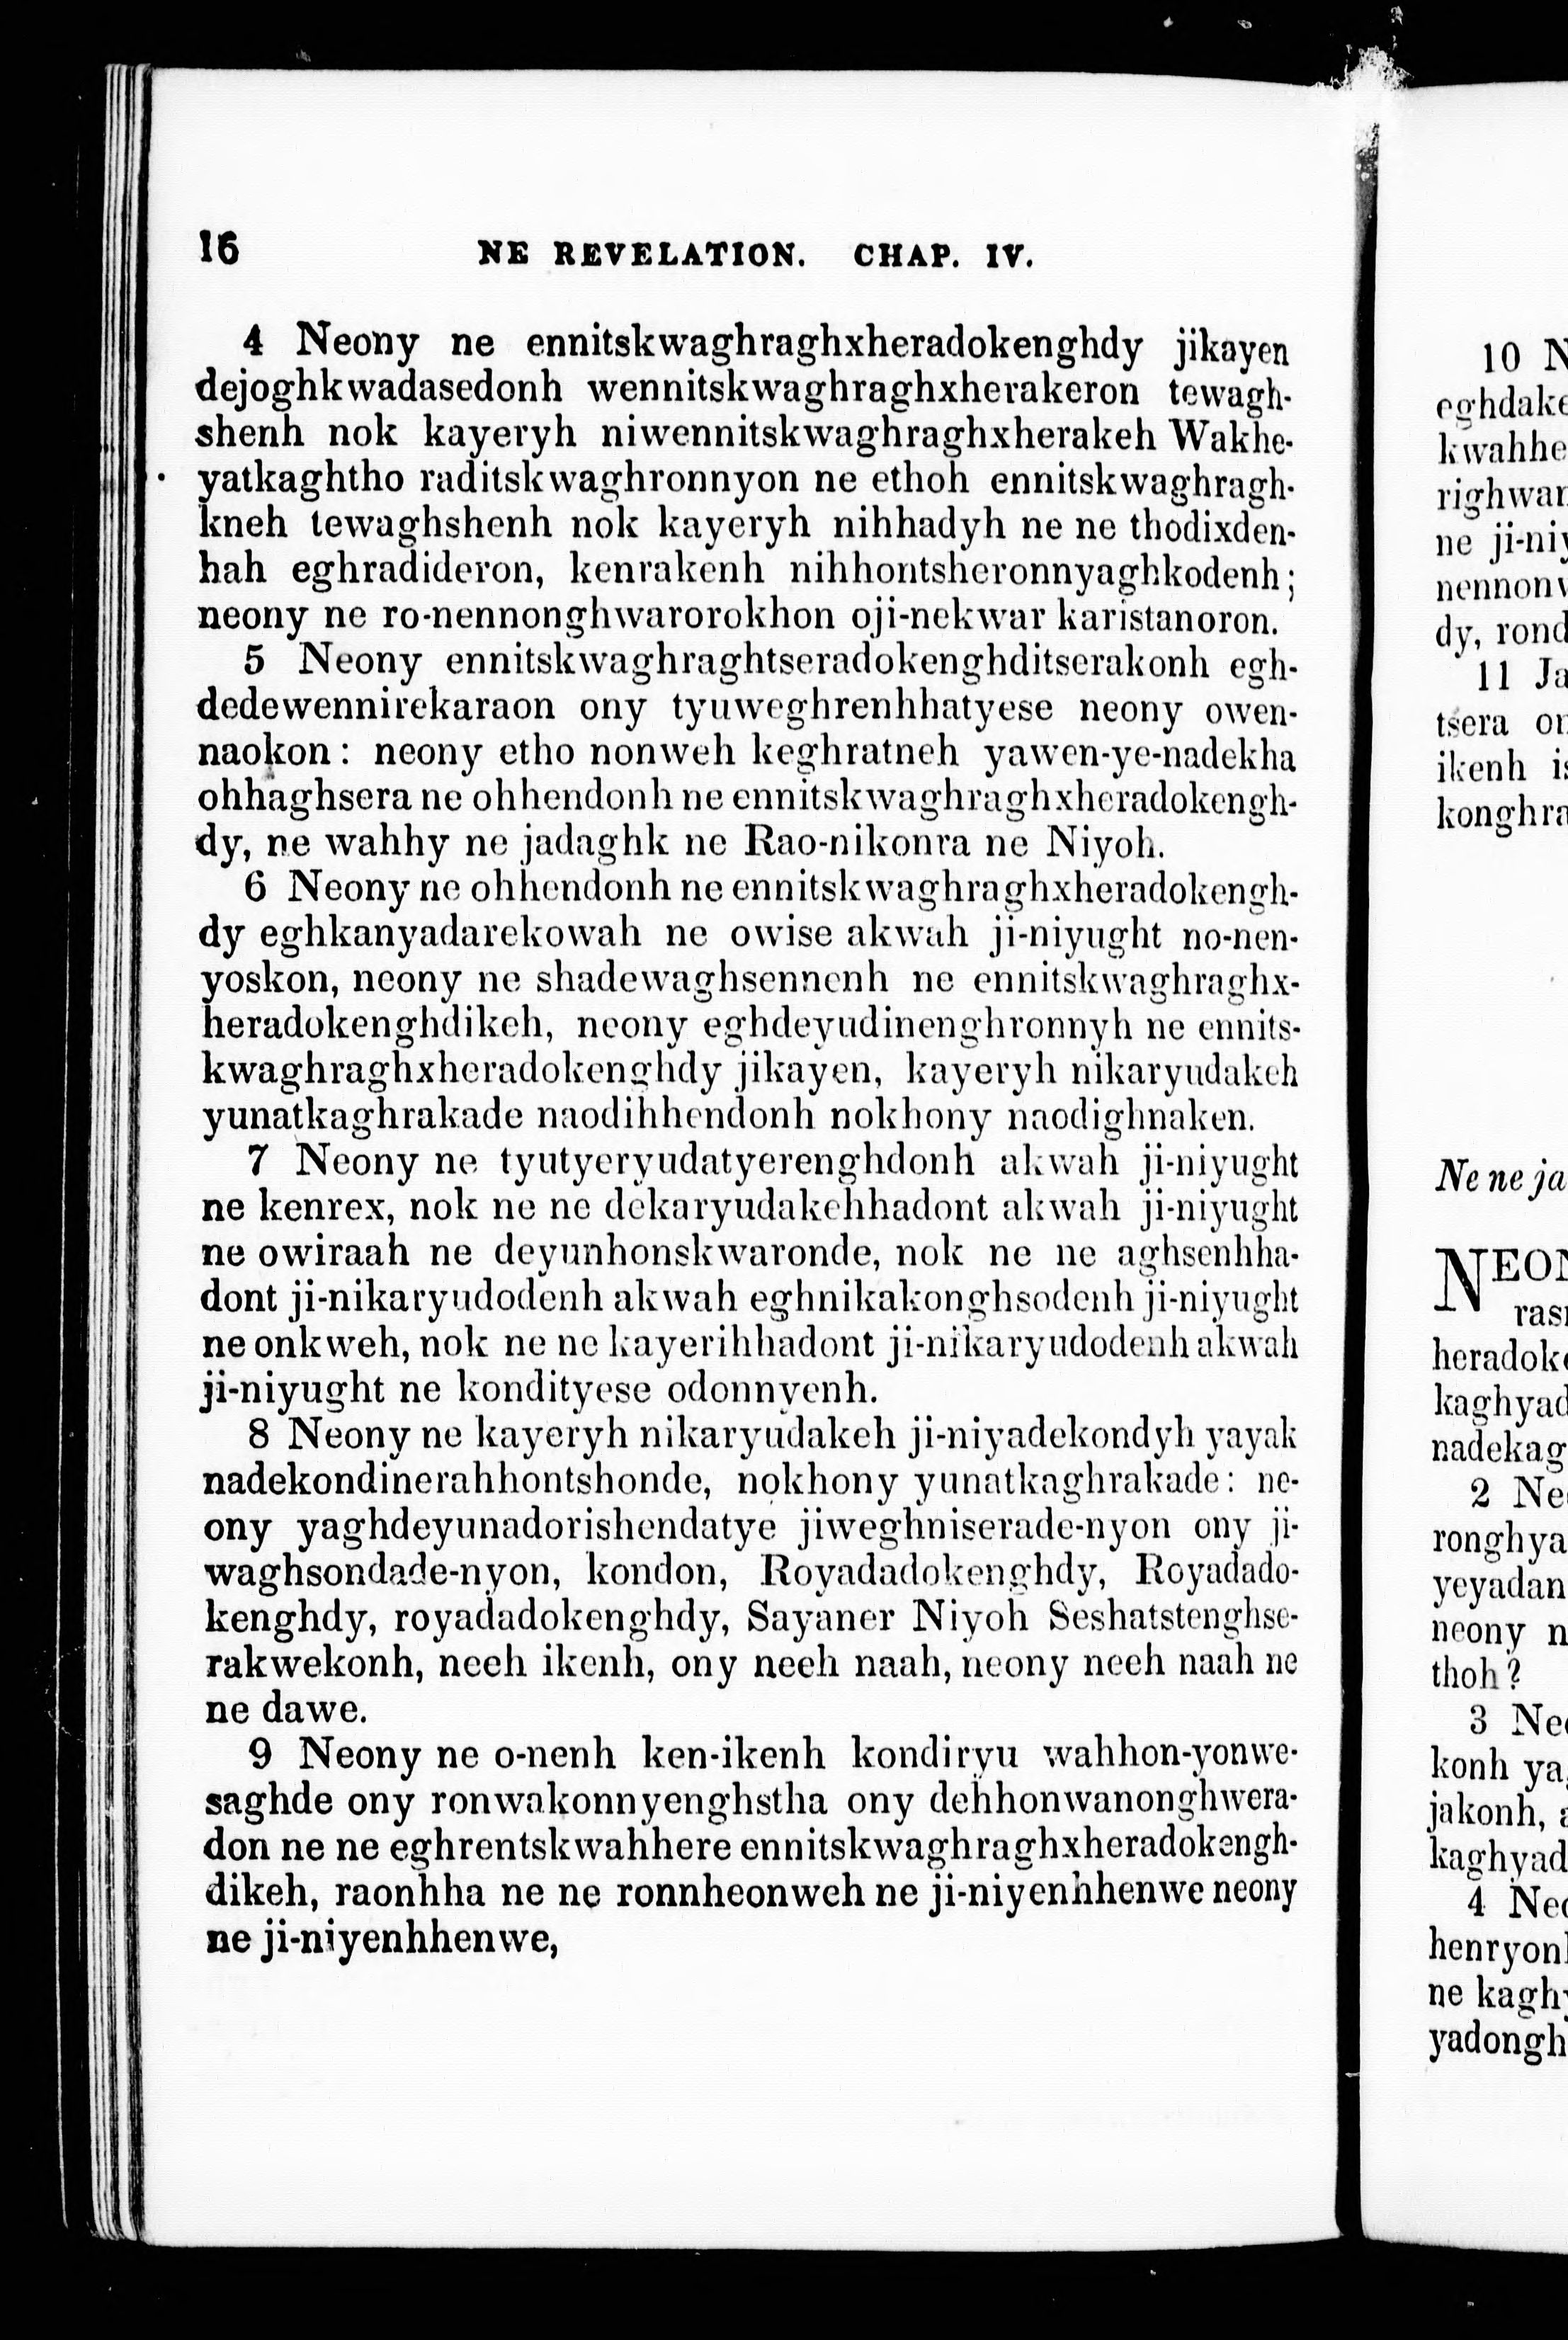 16 NE REVELATION. CHAP. IV.
4 Neony ne ennitskwaghraghxheradokenghdy jikayen
dejoghkwadasedonh wennitskwaghraghxherakeron tewagh-
shenh nok kayeryh niwennitskwaghraghxherakeh Wakhe-
yatkaghtho raditskwaghronnyon ne ethoh ennitskwaghragh-
kneh tewaghshenh nok kayeryh nihhadyh ne ne thodixden-
hah eghradideron, kenrakenh nihhontsheronnyaghkodenh;
neony ne ro-nennonghwarorokhon oji-nekwar karistanoron.
5 Neony ennitskwaghraghtseradokenghditserakonh egh-
dedewennirekaraon ony tyuweghrenhhatyese neony owen-
naokon: neony etho nonweh keghratneh yawen-ye-nadekha
ohhaghsera ne ohhendonh ne ennitskwaghraghxheradokengh-
dy, ne wahhy ne jadaghk ne Rao-nikonra ne Niyoh.
6 Neony ne ohhendonh ne ennitskwaghraghxheradokengh-
dy eghkanyadarekowah ne owise akwah ji-niyught no-nen-
yoskon, neony ne shadewaghsennenh ne ennitskwaghraghx-
heradokenghdikeh, neony eghdeyudinenghronnyh ne ennits-
kwaghraghxheradokenghdy jikayen, kayeryh nikaryudakeh
yunatkaghrakade naodihhendonh nokhony naodighnaken.
7 Neony ne tyutyeryudatyerenghdonh akwah ji-niyught
ne kenrex, nok ne ne dekaryudakehhadont akwah ji-niyught
ne owiraah ne deyunhonskwaronde, nok ne ne aghsenhha-
dont ji-nikaryudodenh akwah eghnikakonghsodenh ji-niyught
ne onkweh, nok ne ne kayerihhadont ji-nikaryudodenh akwah
ji-niyught ne kondityese odonnyenh.
8 Neony ne kayeryh nikaryudakeh ji-niyadekondyh yayak
nadekondinerahhontshonde, nokhony yunatkaghrakade: ne-
ony yaghdeyunadorishendatye jiweghniserade-nyon ony ji-
waghsondade-nyon, kondon, Royadadokenghdy, Royadado-
kenghdy, royadadokenghdy, Sayaner Niyoh Seshatstenghse-
rakwekonh, neeh ikenh, ony neeh naah, neony neeh naah ne
ne dawe.
9 Neony ne o-nenh ken-ikenh kondiryu wahhon-yonwe-
saghde ony ronwakonnyenghstha ony dehhonwanonghwera-
don ne ne eghrentskwahhere ennitskwaghraghxheradokengh-
dikeh, raonhha ne ne ronnheonweh ne ji-niyenhhenwe neony
ne ji-niyenhhenwe,
10 N
eghdake
kwahhe
righwar
ne ji-niy
nennonw
dy, rond
11 Ja
tsera on
ikenh is
konghra
Ne ne ja
NEON
heradoke
kaghyad
nadekag
2 Ne
ronghya
yeyadan
neony n
thoh?
3 Neo
konh ya
jakonh, a
kaghyad
4 Neo
henryonh
ne kaghy
yadongh